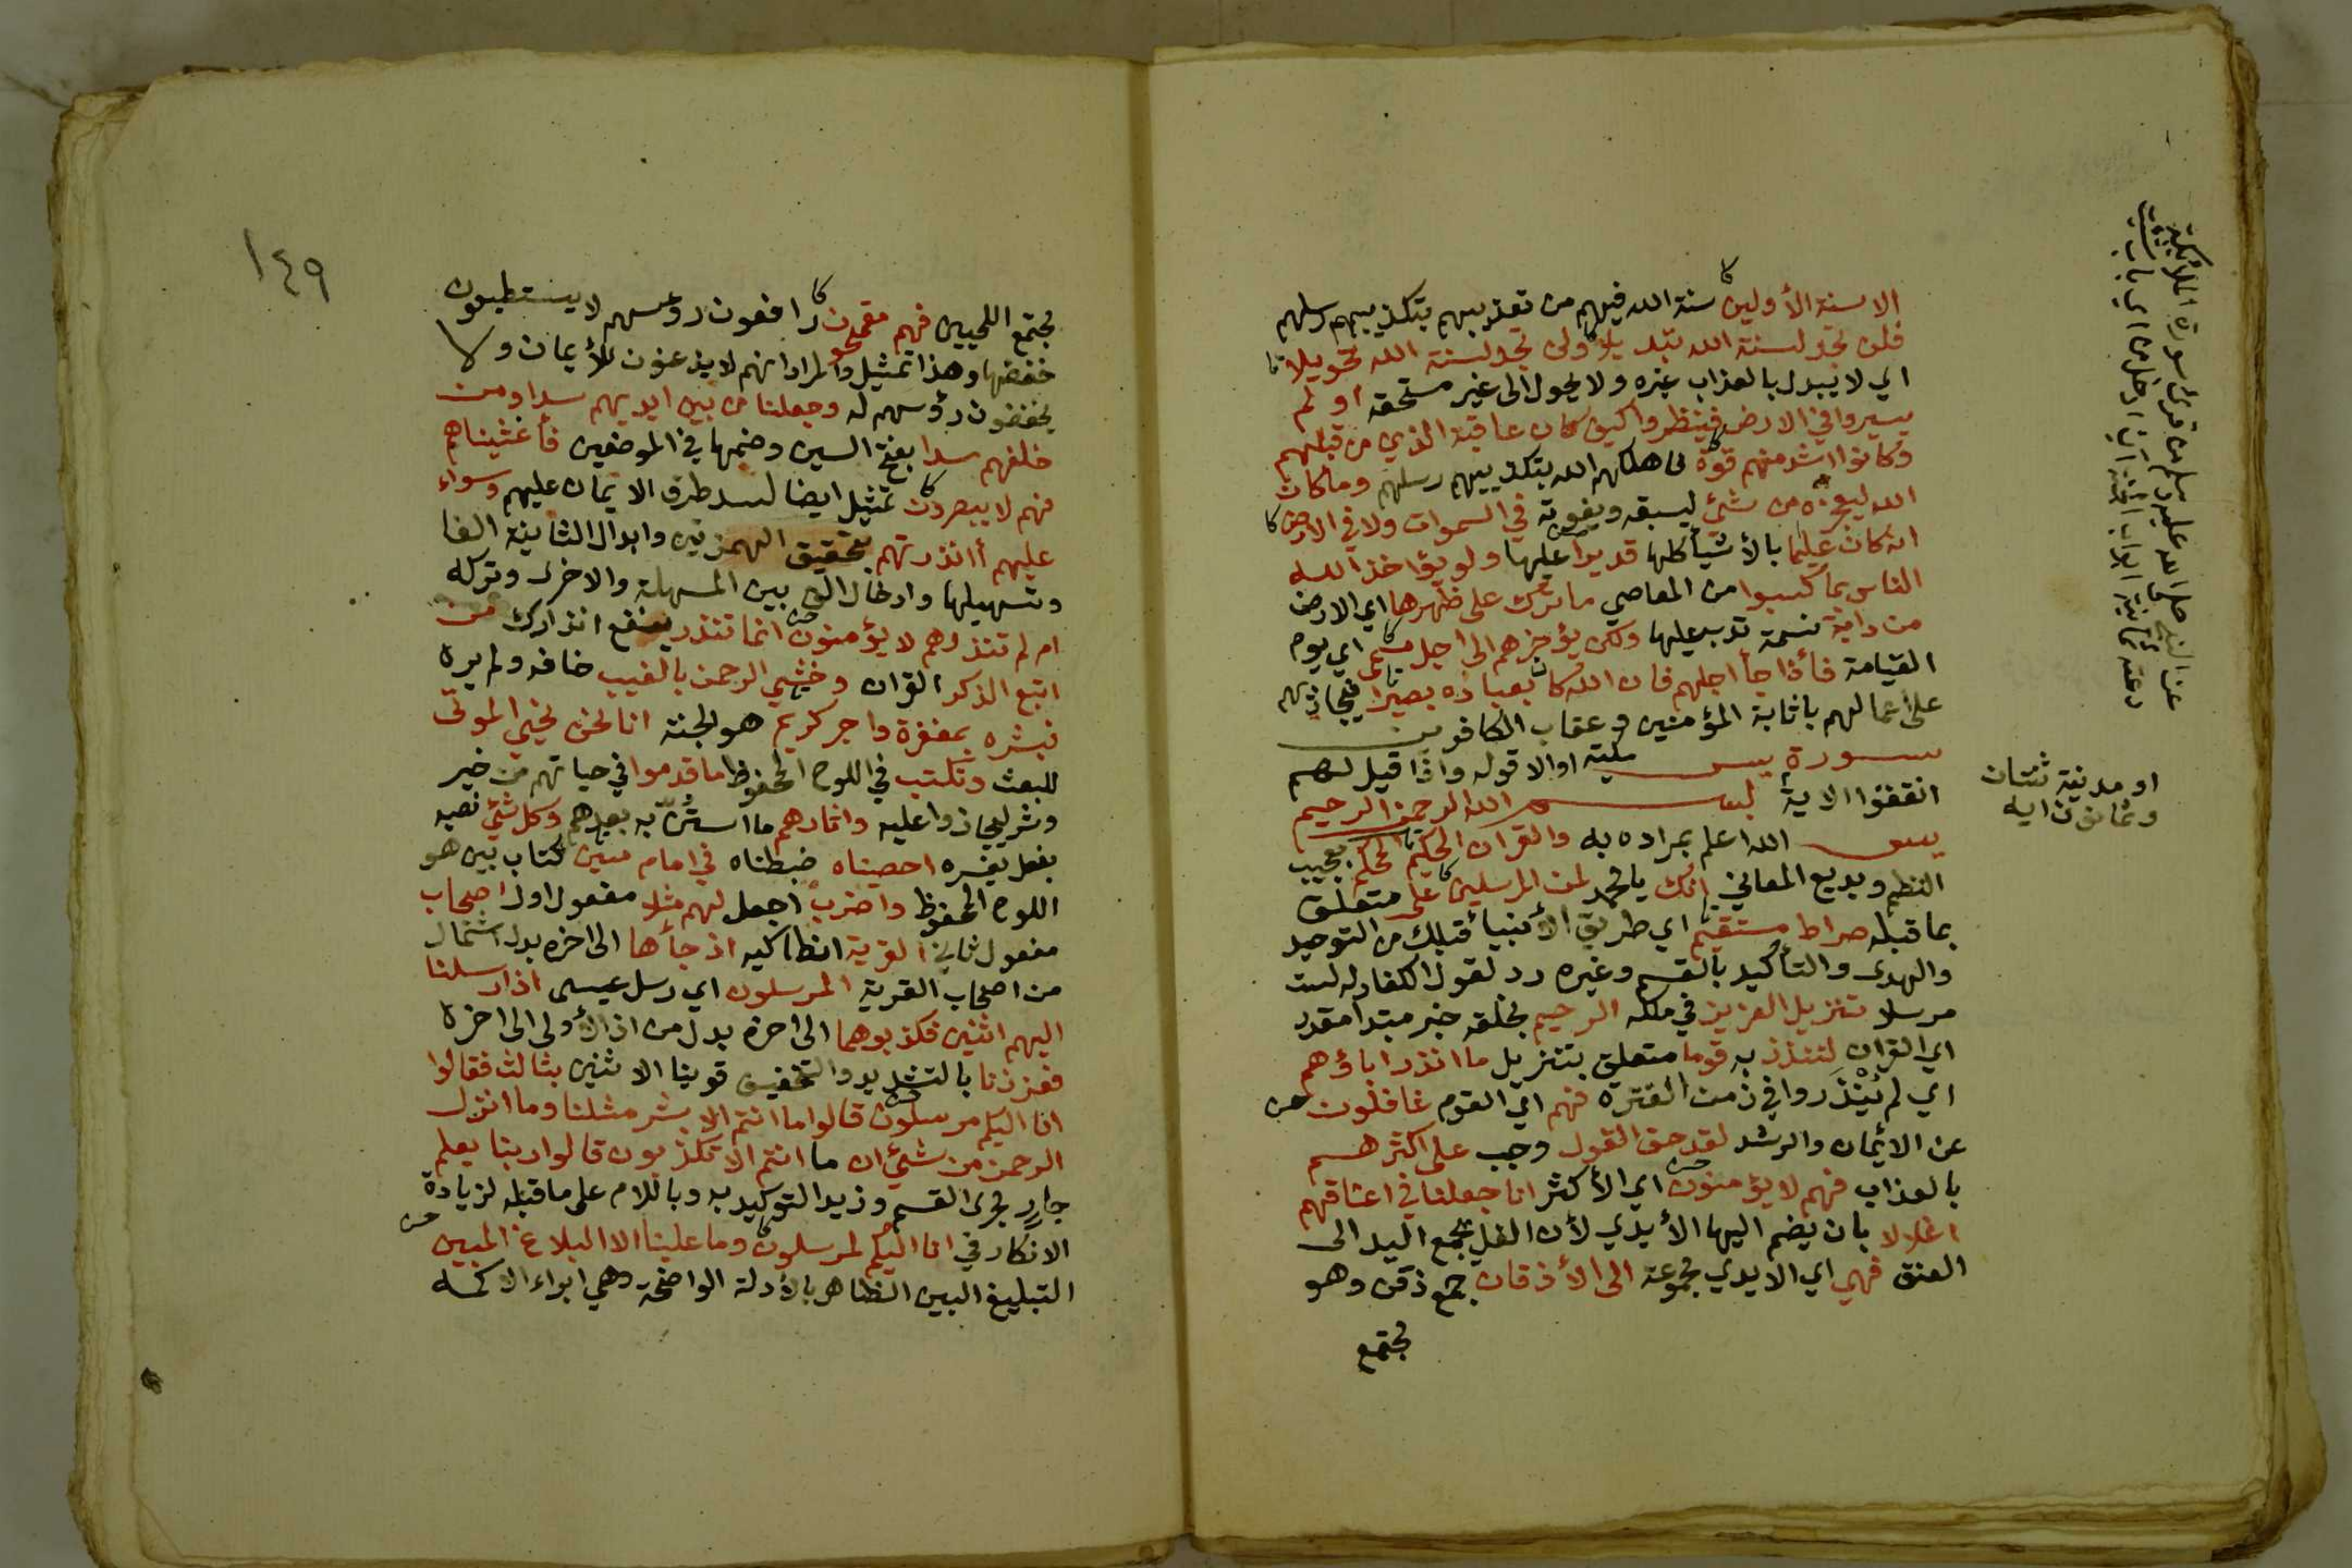 الا سنة الأولين سنة الله فيهم من تعذيبهم بتكذيبهم رسلهم
فلن تجد لسنة الله تبديلا ولن تجد لسنة الله تحويلا
اي لا يبدل بالعذاب غيره ولا يحول الى غير مستحقه او لم
يسيروا في الارض فينظروا كيف كان عاقبة الذين من قبلهم
وكانوا اشد منهم قوة فاهلكهم الله بتكذيبهم رسلهم وما كان
الله ليعجزه من شئ ليسبقه ويفوته في السموات ولا في الارض
انه كان عليما بالأشيأ كلها قديرا عليها ولو يؤاخذ الله
الناس بما كسبوا من المعاصي ما ترك على ظهرها اي الارض
من دابة نسمة تدب عليها ولكن يؤخرهم الى اجل مسمى اي يوم
القيامة فأذا جأ اجلهم فان الله كان بعباده بصيرا فيجازيهم
على اعمالهم باثابة المؤمنين وعقاب الكافرين
سورة يس مكية او الا قوله واذا قيل لهم
انفقوا الاية بسم الله الرحمن الرحيم
يس الله اعلم بمراده به والقران الحكيم المحكم بعجيب
النظم وبديع المعاني انك يا محمد لمن المرسلين على متعلق
بما قبله صراط مستقيم اي طريق الأنبيأ قبلك من التوحيد
والهدى والتأكيد بالقسم وغيره رد لقول الكفار له لست
مرسلا تنزيل العزيز في ملكه الرحيم بخلقه خبر مبتدا مقدر
اي القران لتنذر به قوما متعلق بتنزيل ما انذر اباؤهم
اي لم يُنْذَروا في زمن الفترة فهم اي القوم غافلون
عن الايمان والرشد لقد حق القول وجب على اكثرهم
بالعذاب فهم لا يؤمنون اي الأكثر انا جعلنا في اعناقهم
اغلالا بان يضم اليها الأيدي لأن الغل يجمع اليد الى
العنق فهي اي الايدي مجموعة الى الأذقان جمع ذقن وهو
مجتمع
عن النبي صلى الله عليه وسلم من قرئ سورة الملائكة
دعته ثمانية ابواب الجنة ان ادخل من اي باب شئت
او مدنية ثنتان
وثمانون اية
١٤٩
مجتمع اللحيين فهم مقمحون رافعون رؤسهم لا يستطيعون
خفضها وهذا تمثيل والمراد انهم لا يذعنون للأيمان ولا
يخفضون رؤسهم له وجعلنا من بين ايديهم سدا ومن
خلفهم سدا بفتح السين وضمها في الموضعين فأغشيناهم
فهم لا يبصرون تمثيل ايضا لسد طرق الايمان عليهم وسواء
عليهم أانذرتهم بتحقيق الهمزتين وابدال الثانية الفا
وتسهيلها وادخال الف بين المسهلة والاخرى وتركه
ام لم تنذرهم لا يؤمنون انما تنذر ينفع انذارك من
اتبع الذكر القران وخشي الرحمن بالغيب خافه ولم يره
فبشره بمغفرة واجر كريم هو الجنة انا نحن نحيي الموتى
للبعث ونكتب في اللوح المحفوظ ما قدموا في حياتهم من خير
وشر ليجازوا عليه واثارهم ما استُنّ به بعدهم وكل شئ نصبه
بفعل يفسره احصيناه ضبطناه في امام مبين كتاب بين هو
اللوح المحفوظ واضرب اجعل لهم مثلا مفعول اول اصحاب
مفعول ثاني القرية انطاكيه اذ جأها الى اخره بدل اشتمال
من اصحاب القرية المرسلون اي رسل عيسى اذ ارسلنا
اليهم اثنين فكذبوهما الى اخره بدل من اذ الأولى الى اخره
فعززنا بالتشديد والتخفيف قوينا الاثنين بثالث فقالوا
انا اليكم مرسلون قالوا ما انتم الا بشر مثلنا وما انزل
الرحمن من شئ ان ما انتم الا تكذبون قالوا ربنا يعلم
جار مجرى القسم وزيد التوكيد به وباللام على ما قبله لزيادة
الانكار في انا اليكم لمرسلون وما علينا الا البلاغ المبين
التبليغ البين الظاهر بالأدلة الواضحة وهي ابراء الاكمه